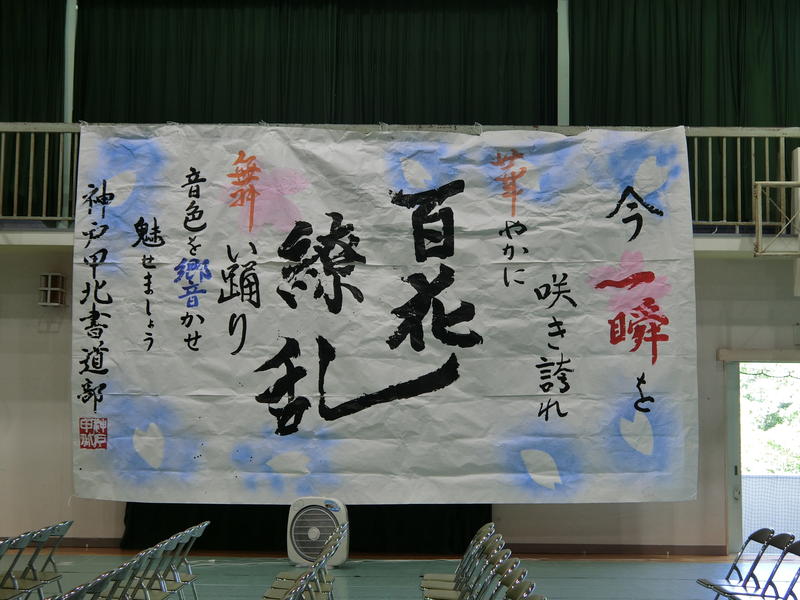 今一瞬を
華やかに
咲き誇れ
百花
繚乱
舞い踊り
音色を響かせ
魅せましょう
神戸甲北書道部
神戸
甲北